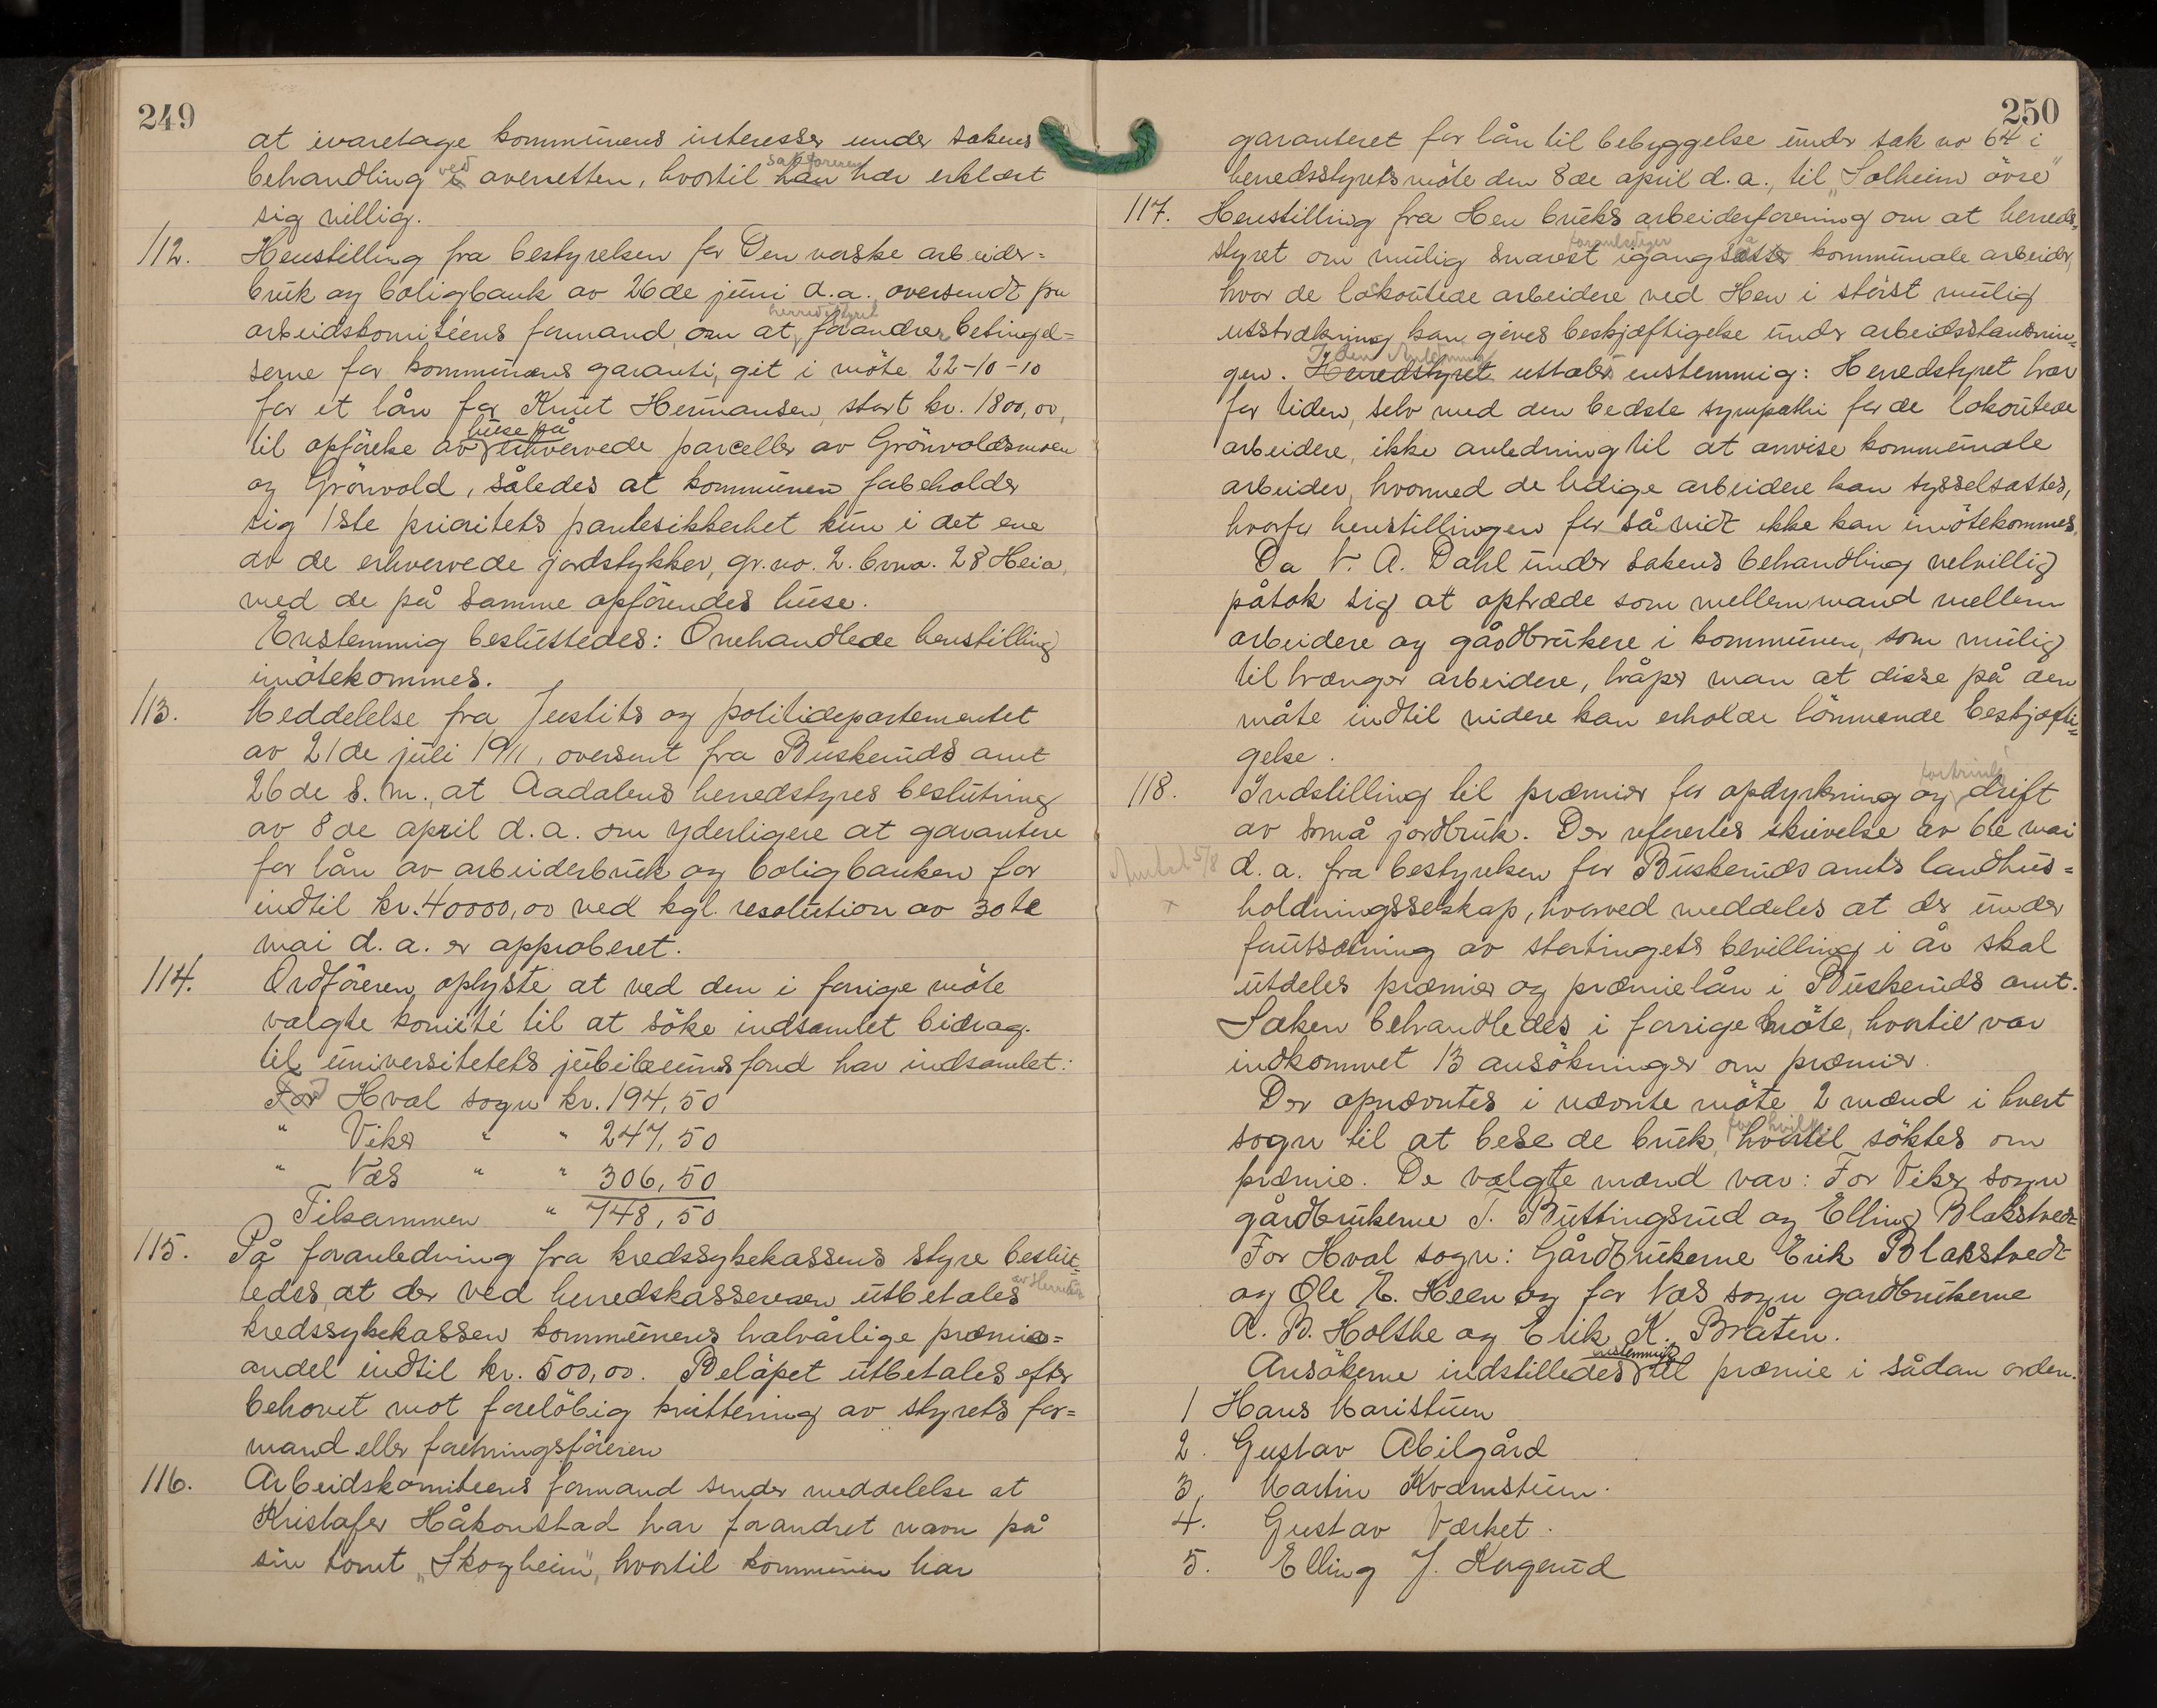 249
at ivaretage kommunens interesser under sakens
behandling ved overretten, hvortil sakføreren han har erklært
sig villig.
112. Henstilling fra bestyrelsen for Den norske arbeider=
bruk og boligbank av 26de juni d.a. oversendt fra
arbeidskomitéens formand, om at herredsstyret forandrer betingel=
serne for kommunens garanti, git i möte 22-10-10
for et lån for Knut Hermansen, stort kr. 1800,00,
til opförelse av huse på erhvervede parceller av Grönvoldsmoen
og Grönvold, således at kommunen forbeholder
sig 1ste prioritets pantesikkerhet kun i det ene
av de erhvervede jordstykker, gr.no. 2. brno. 28 Heia,
med de på samme opförendes huse.
Enstemmig besluttedes: Omhandlede henstilling
imötekommes.
113. Meddelelse fra Justits og politidepartementet
av 21de juli 1911, oversent fra Buskeruds amt
26de s.m., at Aadalens herredstyres beslutning
av 8de april d.a. om yderligere at garantere
for lån av arbeiderbruk og boligbanken for
indtil kr. 40000,00 ved kgl. resolution av 30te
mai d.a. er approberet.
114. Ordföreren oplyste at ved den i forrige möte
valgte komité til at söke indsamlet bidrag
til universitetets jubilæumsfond har indsamlet:
For Hval sogn kr. 194,50
" Viker " " 247,50
" Næs " " 306,50
Tilsammen " 748,50
115. På foranledning fra kredssykekassens styre beslut=
tedes, at der ved herredskassereren utbetales
kredssykekassen kommunens halvårlige præmie=
andel indtil kr. 500,00. Belöpet utbetales efter
behovet mot forelöbig kvittering av styrets for=
mand eller forretningsföreren
116. Arbeidskomiteens formand sender meddelelse at
Kristofer Håkonstad har forandret navn på
sin tomt „Skogheim", hvortil kommunen har
250
garanteret for lån til bebyggelse under sak no 64 i
herredsstyrets möte den 8de april d.a., til „Solheim övre"
117. Henstilling fra Hen bruks arbeiderforening om at herreds=
styret om mulig snarest foranlediger igangsatt kommunale arbeider,
hvor de lokoutede arbeidere ved Hen i störst mulig
utstrækning kan gives beskjæftigelse under arbeidsstansnin=
gen. I den Anledning Herredstyret uttaler enstemmig: Herredstyret har
for tiden, selv med den bedste sympathi for de lokoutede
arbeidere, ikke anledning til at anvise kommunale
arbeider, hvormed de ledige arbeidere kan sysselsættes,
hvorfor henstillingen for så vidt ikke kan imötekommes.
Da N. A. Dahl under sakens behandling velvillig
påtok sig at optræde som mellemmand mellem
arbeidere og gårdbrukere i kommunen, som mulig
tiltrænger arbeidere, håper man at disse på den
måte indtil videre kan erholde lönnende beskjæfti=
gelse.
118. Indstilling til præmier for opdyrkning og fortrinlig drift
av små jordbruk. Der refertes skrivelse av 6te mai
d.a. fra bestyrelsen for Buskeruds amts landhus=
holdningsselskap, hvorved meddeles at der under
forutsætning av stortingets bevilling i år skal
utdeles præmier og præmielån i Buskeruds amt.
Saken behandledes i forrige möte, hvortil var
indkommet 13 ansökninger om præmier.
Der opnævntes i nævnte möte 2 mænd i hvert
sogn til at bese de bruk, for hvilke hvortil söktes om
præmie. De valgte mænd var: For Viker sogn
gårdbrukerne T. Buttingsrud og Elling Blakstvedt
For Hval sogn: Gårdbrukerne Erik Blakstvedt
og Ole E. Heen og for Næs sogn gardbrukerne
A. B. Holthe og Erik K. Bråten.
Ansökerne indstilledes enstemmig til præmie i sådan orden.
1 Hans Maristuen
2. Gustav Abilgård
3. Martin Kvernstuen.
4. Gustav Værket.
5. Elling J. Kogerud